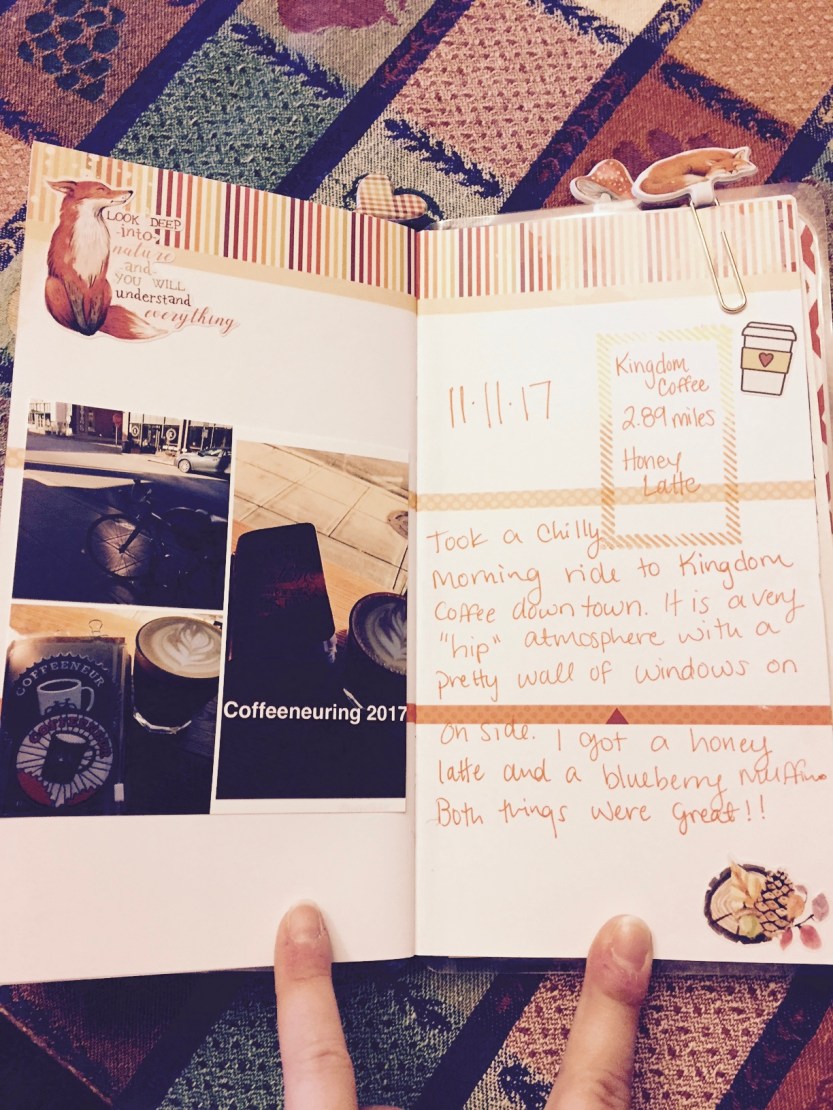 LOOK DEEP
-into-
nature
-and-
YOU WILL
understand
everything
COFFEENEUR
Coffeeneuring 2017
11.11.17
Kingdom
Coffee
2.89 miles
Honey
Latte
Took a chilly
morning ride to Kingdom
Coffee downtown. It is a very
"hip" atmosphere with a
pretty wall of windows on
on side. I got a honey
latte and a blueberry muffin.
Both things were great!!